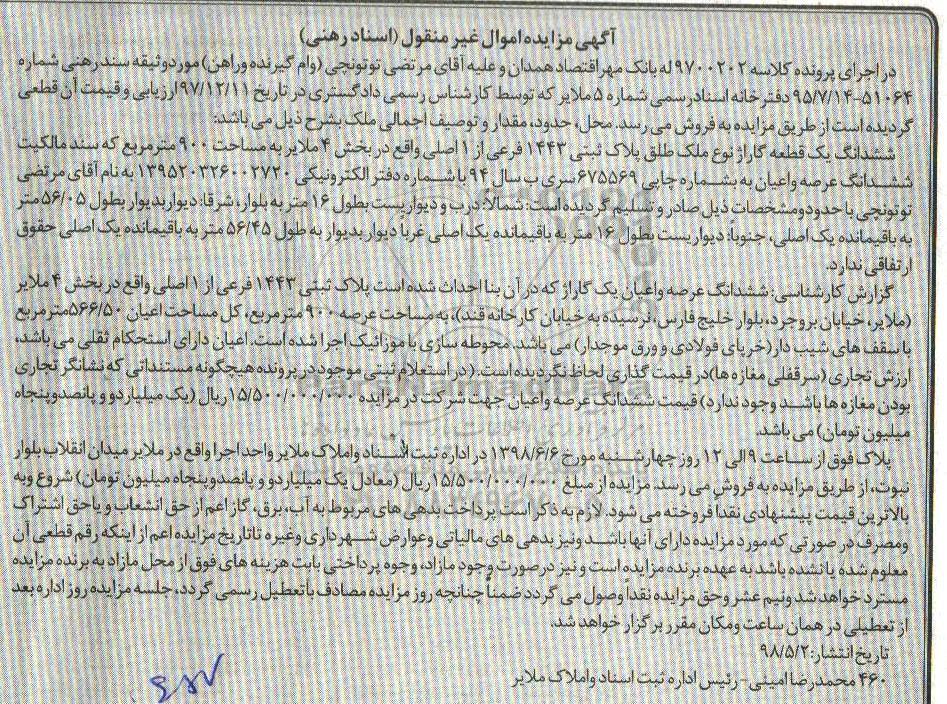 آگهی مزایده اموال غیر منقول (اسناد رهنی)
در اجرای پرونده کلاسه ۹۷۰۰۲۰۲ له بانک مهر اقتصاد همدان و علیه آقای مرتضی توتونچی (وام گیرنده وراهن) مورد وثیقه سند رهنی شماره
۵۱۰۶۴-۹۵/۷/۱۴ دفترخانه اسناد رسمی شماره ۵ ملایر که توسط کارشناس رسمی دادگستری در تاریخ ۹۷/۱۲/۱۱ ارزیابی و قیمت آن قطعی
گردیده است از طریق مزایده به فروش می رسد. محل، حدود، مقدار و توصیف اجمالی ملک بشرح ذیل می باشد:
ششدانگ یک قطعه گاراژ نوع ملک طلق پلاک ثبتی ۱۴۴۳ فرعی از ۱ اصلی واقع در بخش ۴ ملایر به مساحت ۹۰۰ مترمربع که سند مالکیت
ششدانگ عرصه واعیان به شماره چاپی ۶۷۵۵۶۹ سری ب سال ۹۴ با شماره دفتر الکترونیکی ۱۳۹۵۲۰۳۲۶۰۰۲۷۲۰ به نام آقای مرتضی
توتونچی با حدود و مشخصات ذیل صادر و تسلیم گردیده است: شمالاً: درب و دیواریست بطول ۱۶ متر به بلوار، شرقا: دیوار بدیوار بطول ۵۶/۰۵ متر
به باقیمانده یک اصلی، جنوباً: دیواریست بطول ۱۶ متر به باقیمانده یک اصلی غرباً دیوار بدیوار به طول ۵۶/۴۵ متر به باقیمانده یک اصلی حقوق
ارتفاقی ندارد.
گزارش کارشناسی: ششدانگ عرصه واعیان یک گاراژ که در آن بنا احداث شده است پلاک ثبتی ۱۴۴۳ فرعی از ۱ اصلی واقع در بخش ۴ ملایر
(ملایر، خیابان بروجرد، بلوار خلیج فارس، نرسیده به خیابان کارخانه قند)، به مساحت عرصه ۹۰۰ مترمربع، کل مساحت اعیان ۵۶۶/۵۰ مترمربع
با سقف های شیب دار (خرپای فولادی و ورق موجدار) می باشد. محوطه سازی با موزائیک اجرا شده است. اعیان دارای استحکام ثقلی می باشد،
ارزش تجاری (سرقفلی مغازه ها) در قیمت گذاری لحاظ نگردیده است. (در استعلام ثبتی موجود در پرونده هیچگونه مستنداتی که نشانگر تجاری
بودن مغازه ها باشد وجود ندارد) قیمت ششدانگ عرصه واعیان جهت شرکت در مزایده ۱۵/۵۰۰/۰۰۰/۰۰۰ ریال (یک میلیارد و پانصدوپنجاه
میلیون تومان) می باشد.
پلاک فوق از ساعت ۹ الی ۱۲ روز چهارشنبه مورخ ۱۳۹۸/۶/۶ در اداره ثبت اسناد واملاک ملایر واحد اجرا واقع در ملایر میدان انقلاب بلوار
نبوت، از طریق مزایده به فروش می رسد. مزایده از مبلغ ۱۵/۵۰۰/۰۰۰/۰۰۰ ریال (معادل یک میلیارد و پانصدوپنجاه میلیون تومان) شروع وبه
بالاترین قیمت پیشنهادی نقداً فروخته می شود. لازم به ذکر است پرداخت بدهی های مربوط به آب، برق، گاز اعم از حق انشعاب و یا حق اشتراک
ومصرف در صورتی که مورد مزایده دارای آنها باشد ونیز بدهی های مالیاتی وعوارض شهرداری وغیره تا تاریخ مزایده اعم از اینکه رقم قطعی آن
معلوم شده یا نشده باشد به عهده برنده مزایده است و نیز در صورت وجود مازاد، وجوه پرداختی بابت هزینه های فوق از محل مازاد به برنده مزایده
مسترد خواهد شد ونیم عشر وحق مزایده نقداً وصول می گردد ضمناً چنانچه روز مزایده مصادف با تعطیل رسمی گردد، جلسه مزایده روز اداره بعد
از تعطیلی در همان ساعت ومکان مقرر برگزار خواهد شد.
تاریخ انتشار: ۹۸/۵/۲
۴۶۰ محمدرضا امینی - رئیس اداره ثبت اسناد واملاک ملایر